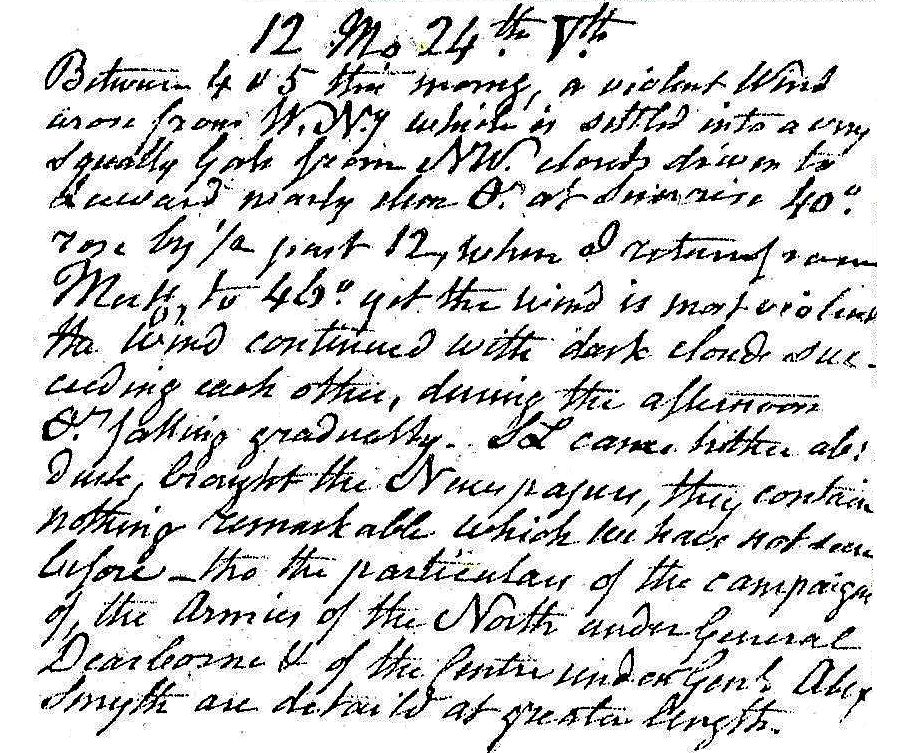 12 Mo 24th Vth
Between 4 & 5 this morng, a violent Wind
arose from W.N.W which is settled into a very
squally Gale from NW. clouds driven to
leeward nearly clear at Sunrise 40°.
rose by 1/2 past 12, when I returned from
to 46° yet the wind is most violent
tha Wind continued with dark clouds suc-
ceeding each other, during the afternoon
falling gradually. SL came hither ab:
dusk, brought the Newspapers, they contain
nothing remarkable which we have not seen
before - tho the particulars of the campaign
of, the Armies of the North under General
Dearborne & of the Centre under Genl. Alex
Smyth are detail'd at greater length.